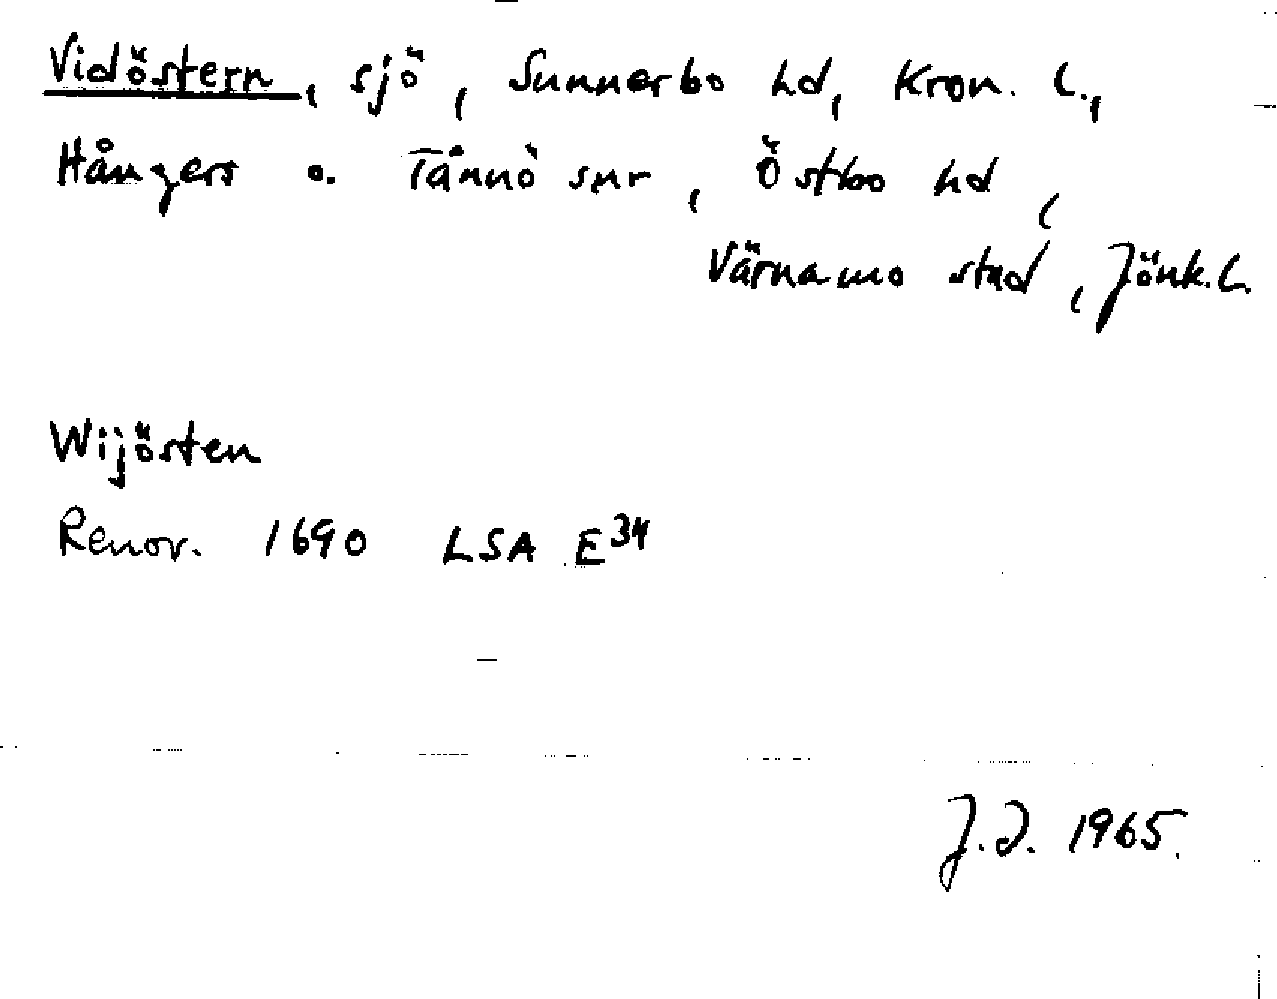 Vidöstern, sjö, Sunnerbo hd, Kron. l.,
Hångers o. Tånnö snr, Östbo hd,
Värnamo stad, Jönk. l.
Wijösten
Renov. 1690 LSA E³⁴
J.I. 1965.